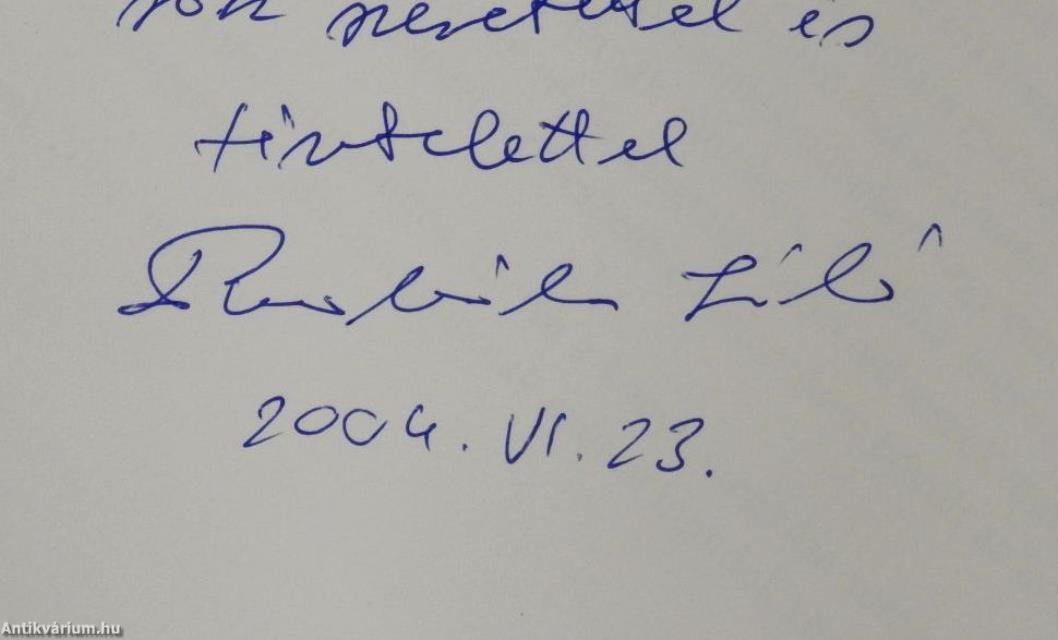 sok szeretettel és
tisztelettel
2004. VI. 23.
Antikvárium.hu